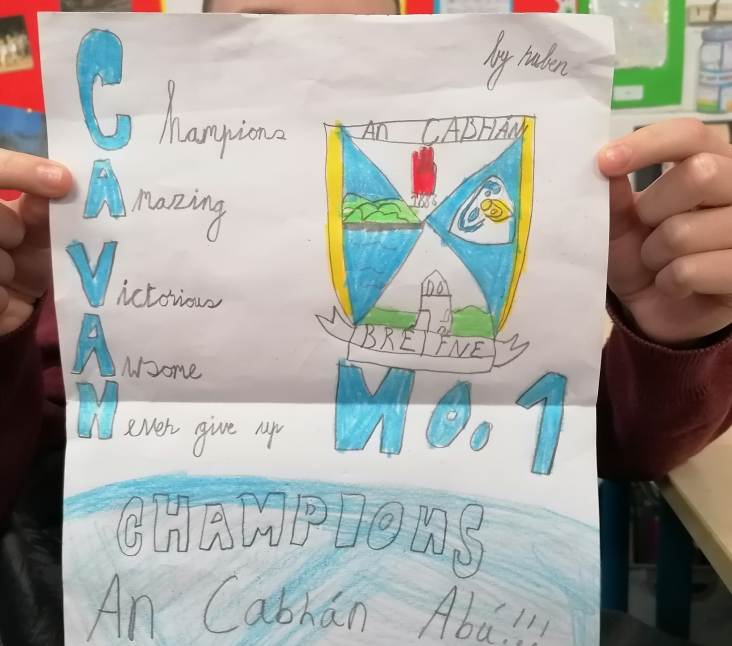 by ruben
Champions
Amazing
Victorious
Awsome
Never give up
An CABHÁN
1886
BREIFNE
No.1
CHAMPIONS
An Cabhán Abú!!!